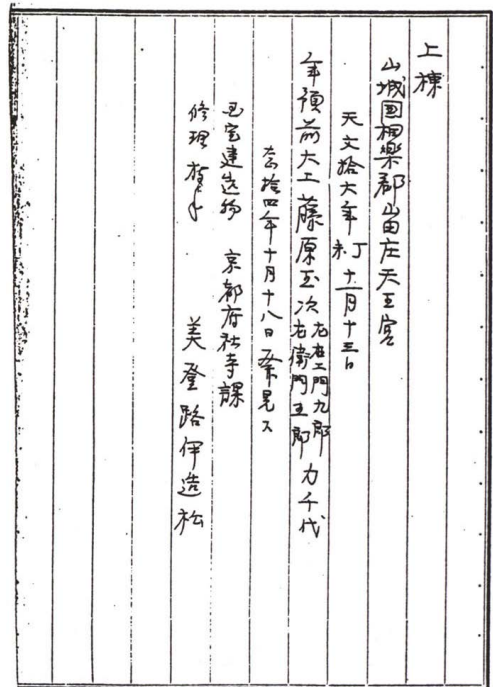 上棟
山城国相楽郡 田庄天王宮
天文拾六年丁未十一月十三日
年預前大工藤原玉次 左衛門九郎 右衛門五郎 力千代
拾四年十月十八日発見ス
国宝建造物 京都府社寺課
修理 美登路伊造松